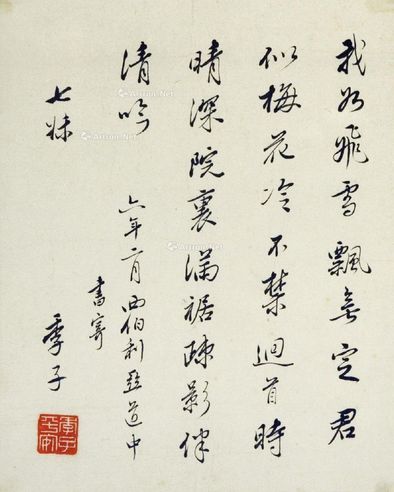 我如飛雪飄無定君
似梅花冷不禁迴首時
晴深院裏滿裾疎影伴
清吟
六年二月西伯利亞道中
書寄
七妹
季子
季子
平安